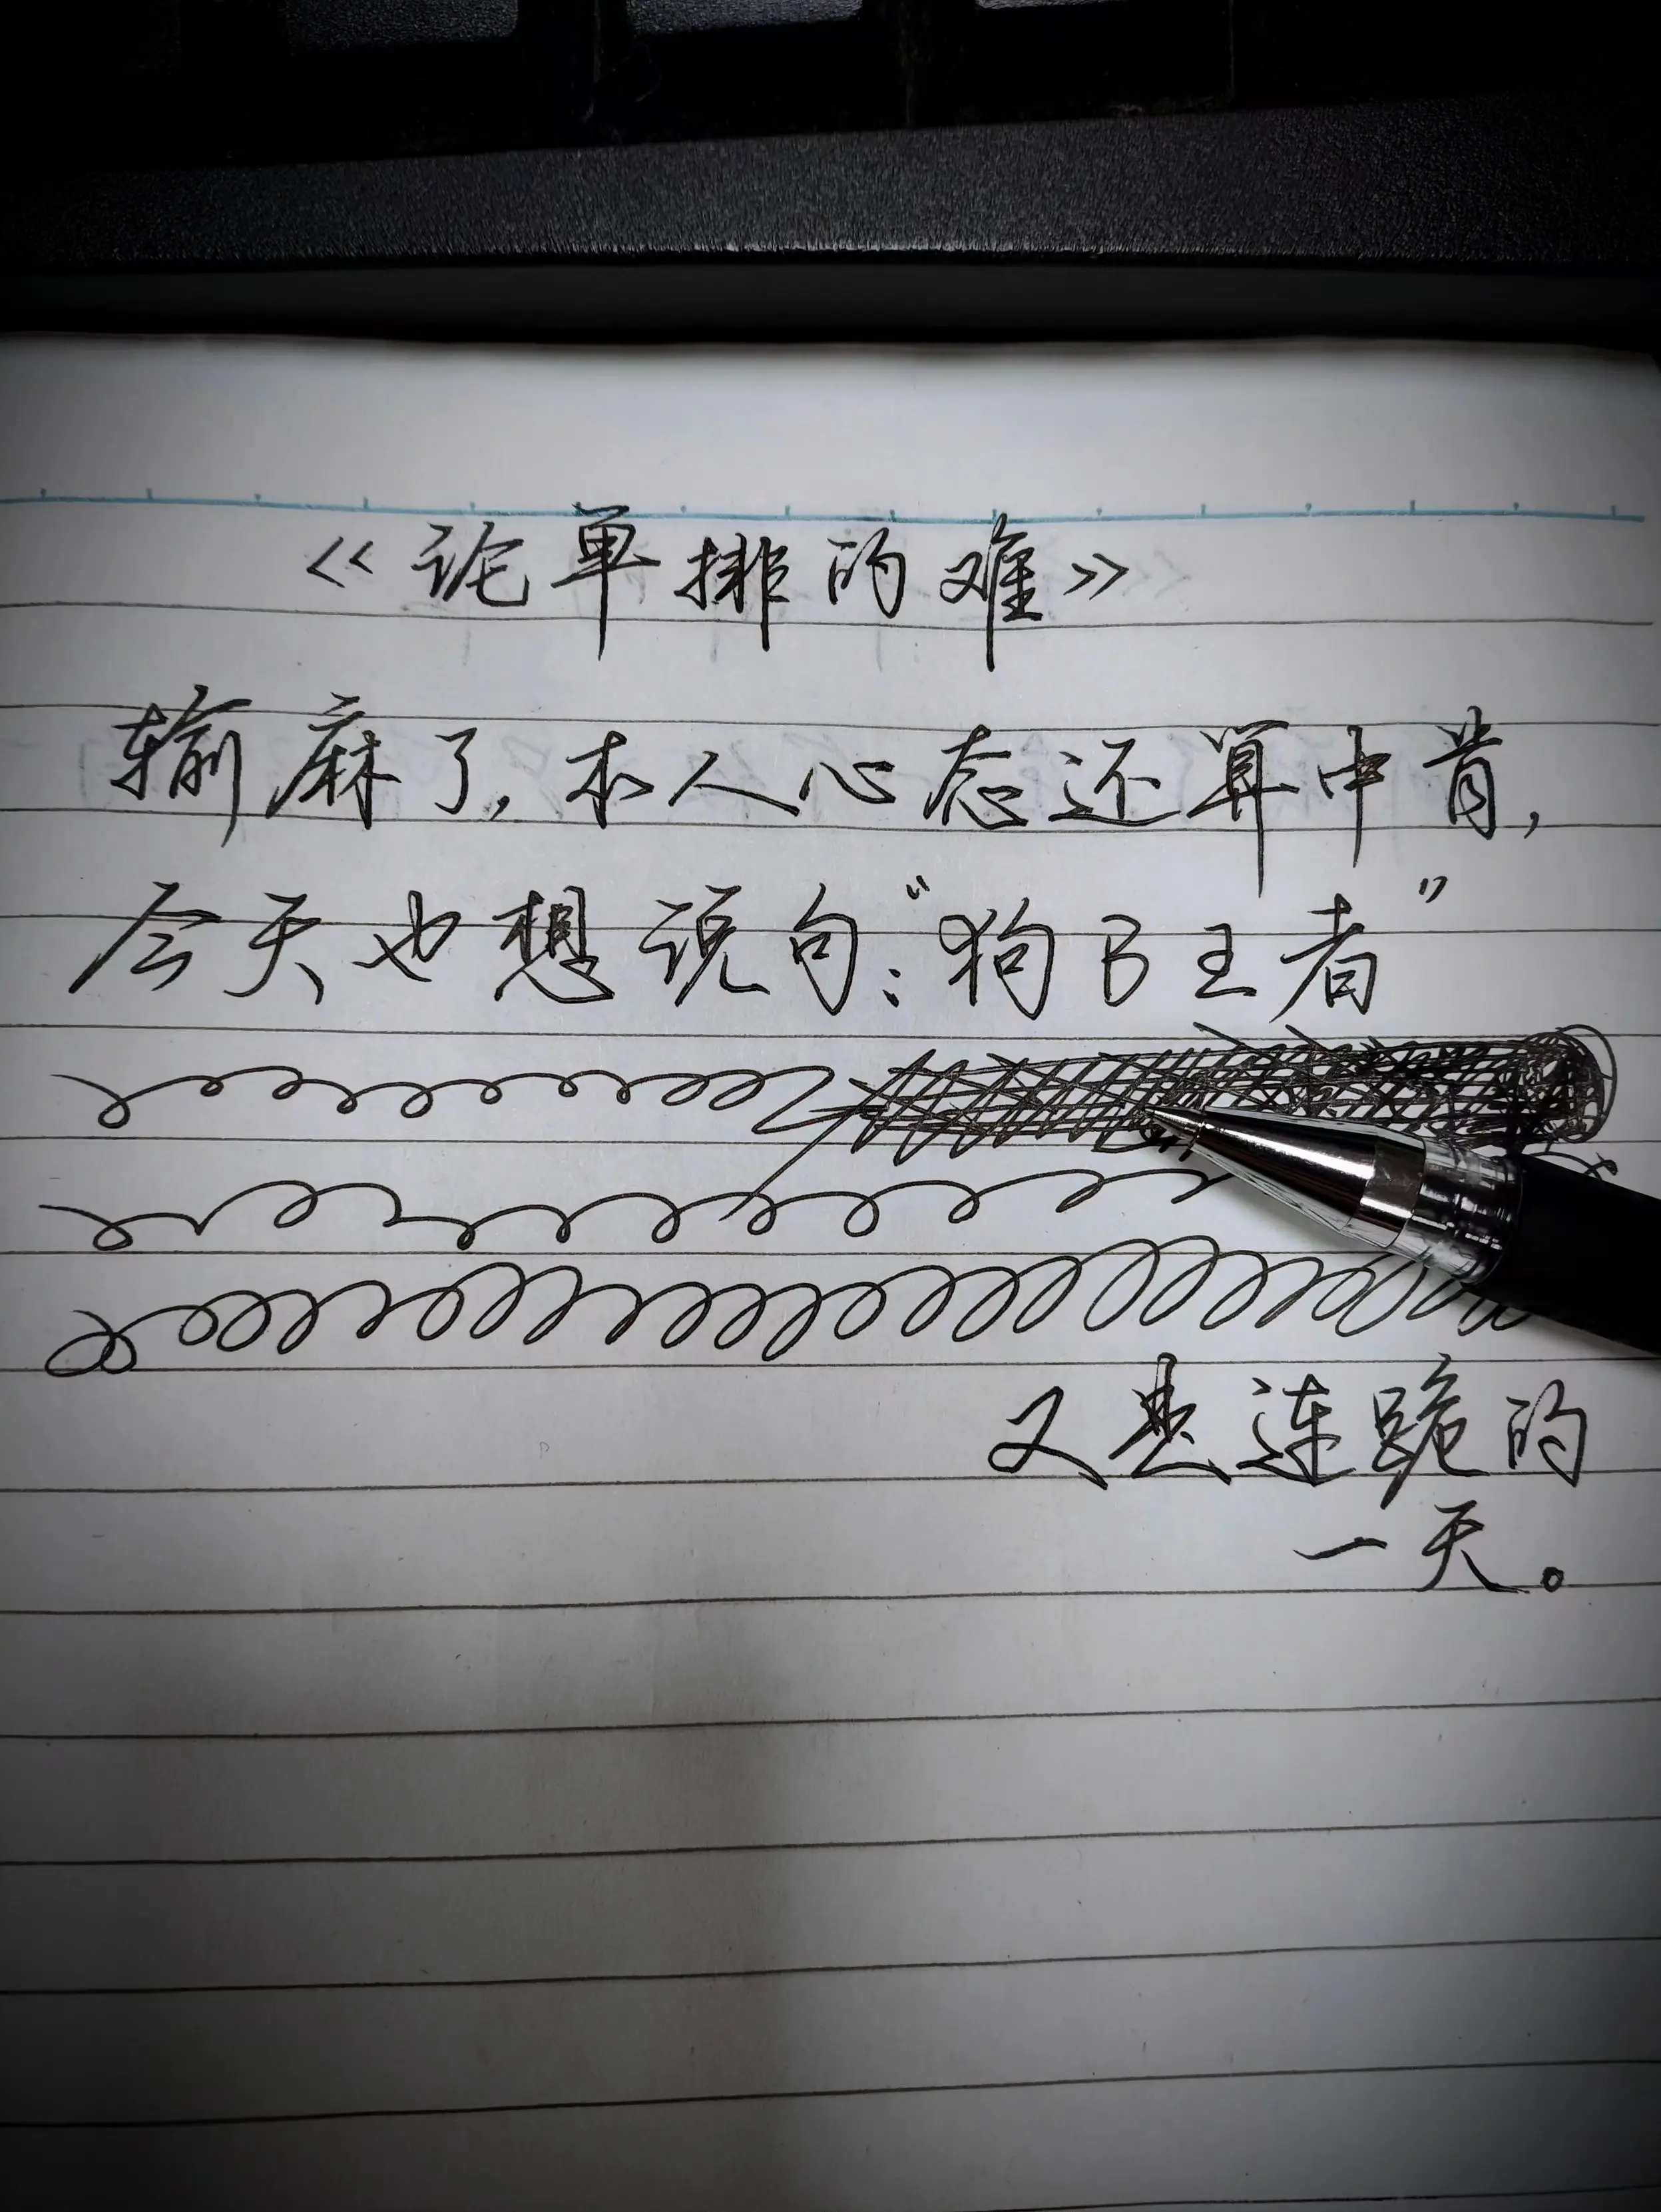 《论单排的难》
输麻了，本人心态还算中肯，
今天也想说句：“狗B王者”
又是连跪的
一天。